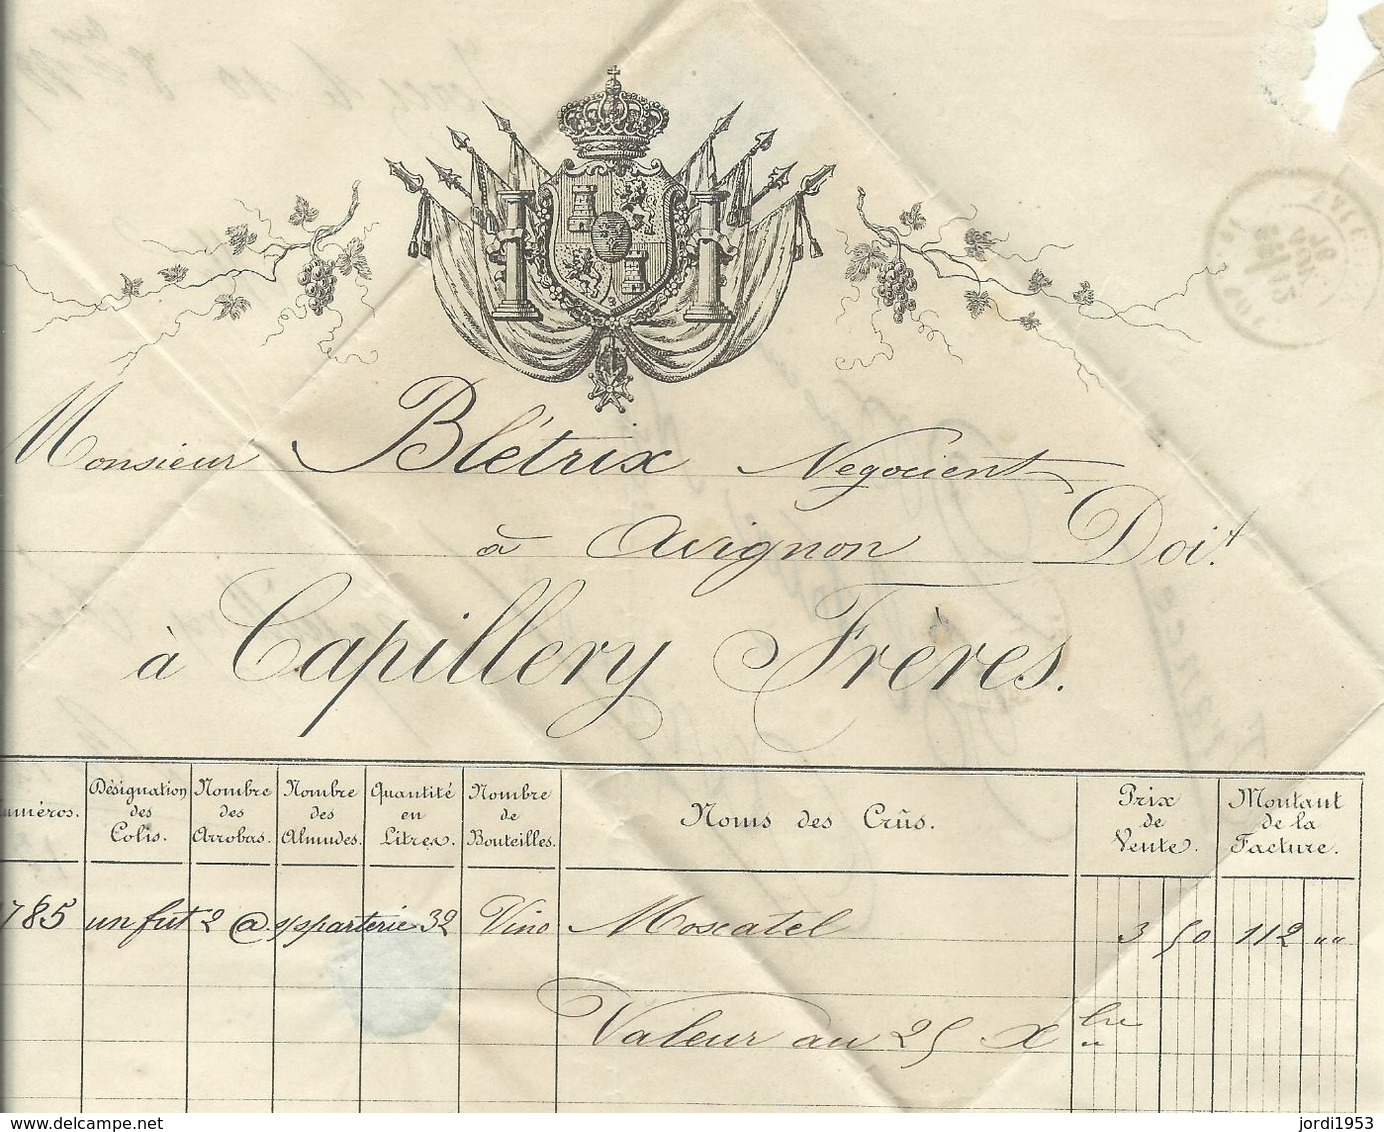 Monsieur Blétrix Negocient
à Avignon Doit.
à Capillery Frères.
uméros.
Désignation des Colis.
Nombre des Arrobas.
Nombre des Almudes.
Quantité en Litres.
Nombre de Bouteilles.
Noms des Crûs.
Prix de Vente.
Montant de la Facture.
785 un fut 2 @ s/sparterie 32 Vino Moscatel 3 50 112 " "
Valeur au 25 Xbre
www.delcampe.net
jordi1953